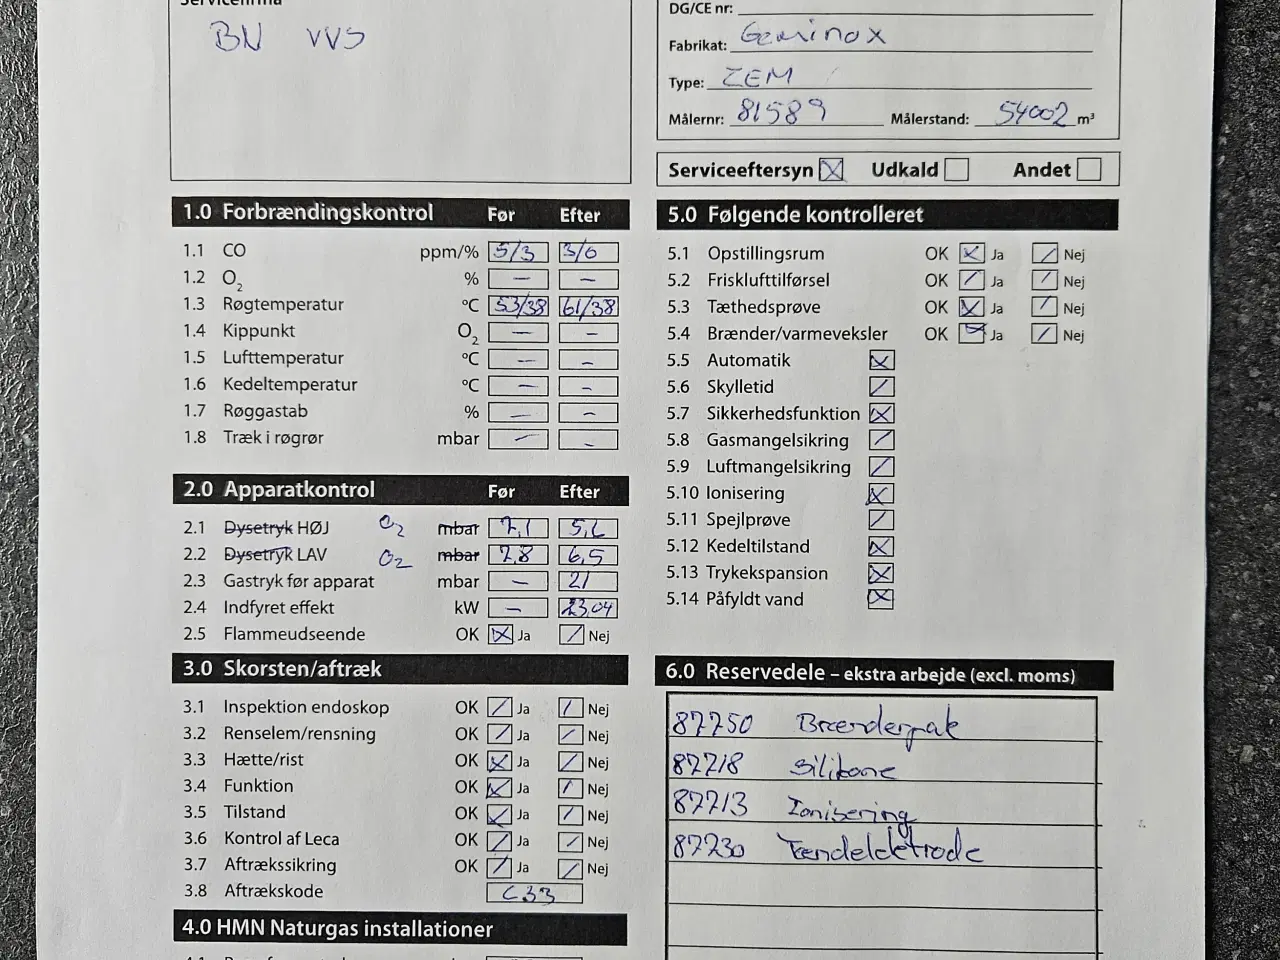 Servicefirma
BN VVS
DG/CE nr:
Fabrikat: Geminox
Type: ZEM
Målernr: 81589 Målerstand: 54002 m³
Serviceeftersyn Udkald Andet
1.0 Forbrændingskontrol Før Efter
1.1 CO ppm/% 5/3 3/0
1.2 O₂ % – –
1.3 Røgtemperatur °C 53/38 61/38
1.4 Kippunkt O₂ – –
1.5 Lufttemperatur °C – –
1.6 Kedeltemperatur °C – –
1.7 Røggastab % – –
1.8 Træk i røgrør mbar – –
2.0 Apparatkontrol Før Efter
2.1 Dysetryk HØJ O₂ mbar 7,1
2.2 Dysetryk LAV O₂ mbar 7,8 6,5
2.3 Gastryk før apparat mbar – 21
2.4 Indfyret effekt kW – 23,04
2.5 Flammeudseende OK Ja Nej
3.0 Skorsten/aftræk
3.1 Inspektion endoskop OK Ja Nej
3.2 Renselem/rensning OK Ja Nej
3.3 Hætte/rist OK Ja Nej
3.4 Funktion OK Ja Nej
3.5 Tilstand OK Ja Nej
3.6 Kontrol af Leca OK Ja Nej
3.7 Aftrækssikring OK Ja Nej
3.8 Aftrækskode C33
4.0 HMN Naturgas installationer
5.0 Følgende kontrolleret
5.1 Opstillingsrum OK Ja Nej
5.2 Frisklufttilførsel OK Ja Nej
5.3 Tæthedsprøve OK Ja Nej
5.4 Brænder/varmeveksler OK Ja Nej
5.5 Automatik
5.6 Skylletid
5.7 Sikkerhedsfunktion
5.8 Gasmangelsikring
5.9 Luftmangelsikring
5.10 Ionisering
5.11 Spejlprøve
5.12 Kedeltilstand
5.13 Trykekspansion
5.14 Påfyldt vand
6.0 Reservedele – ekstra arbejde (excl. moms)
87750 Brænderpak
87718 Silikone
87713 Ionisering
87730 Tændelektrode